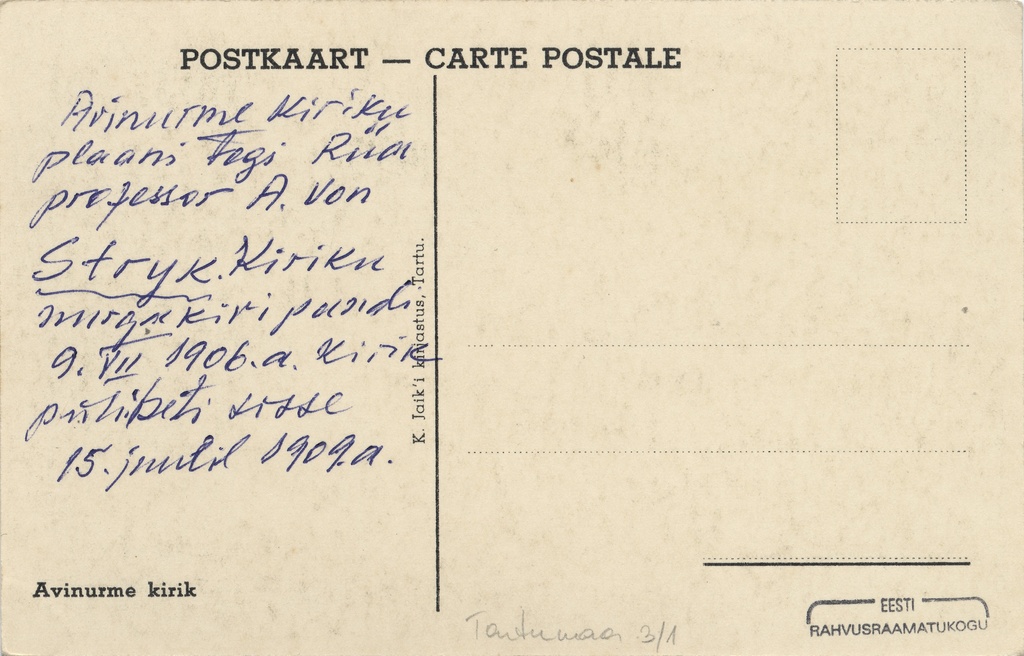 POSTKAART — CARTE POSTALE
Avinurme Kiriku
plaani Tegi Riia
professor A. von
Stryk. Kiriku
nurgakivi pandi
9. VII 1906.a. Kirik
pühitseti sisse
15. juulil 1909.a.
K. Jaik'i kirjastus, Tartu.
Avinurme kirik
Tartumaa 3/1
EESTI
RAHVUSRAAMATUKOGU